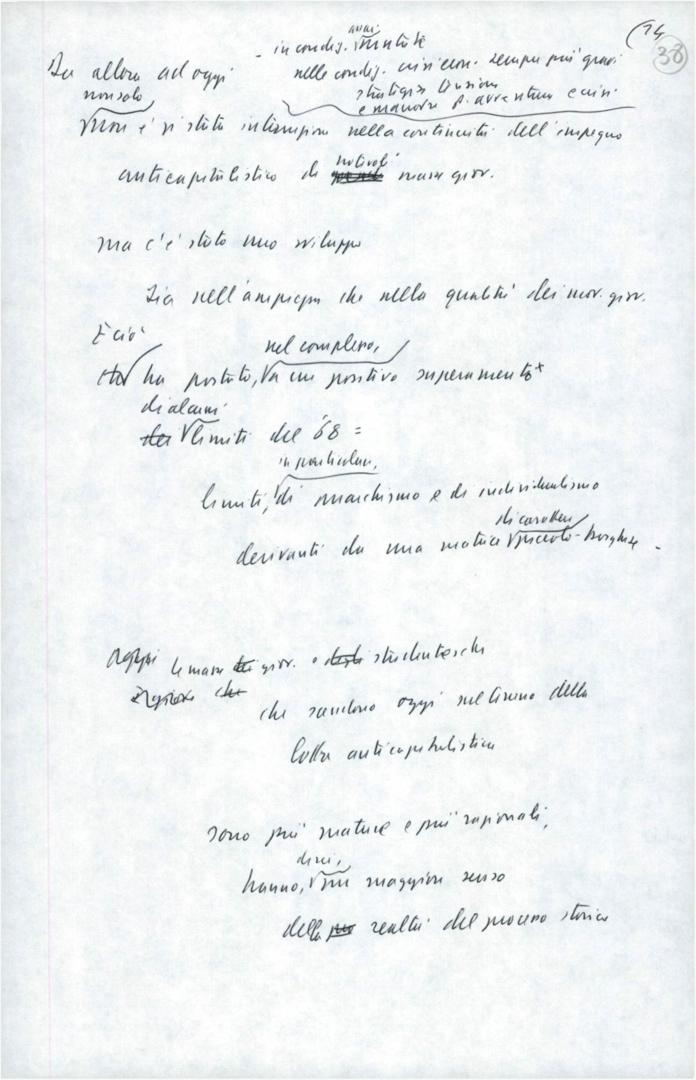 14
38
assai
- in condiz. mutate
Da allora ad oggi nelle condiz. crisi econ. sempre più gravi
strategia tensione
e manovre p. avventura e crisi
non solo
non c'è stata interruzione nella continuità dell'impegno
anticapitalistico di notevoli masse giov.
ma c'è stato uno sviluppo
Sia nell'ampiezza che nella qualità dei mov. giov.
E ciò
che ha portato, nel complesso, a un positivo superamento x
di alcuni
dei limiti del '68 =
in particolare,
limiti, di anarchismo e di individualismo
di carattere
derivanti da una matrice piccolo-borghese -
Oggi le masse giov. o studentesche
che scendono oggi sul terreno della
lotta anticapitalistica
sono più mature e più razionali,
direi,
hanno, un maggiore senso
della realtà del processo storico